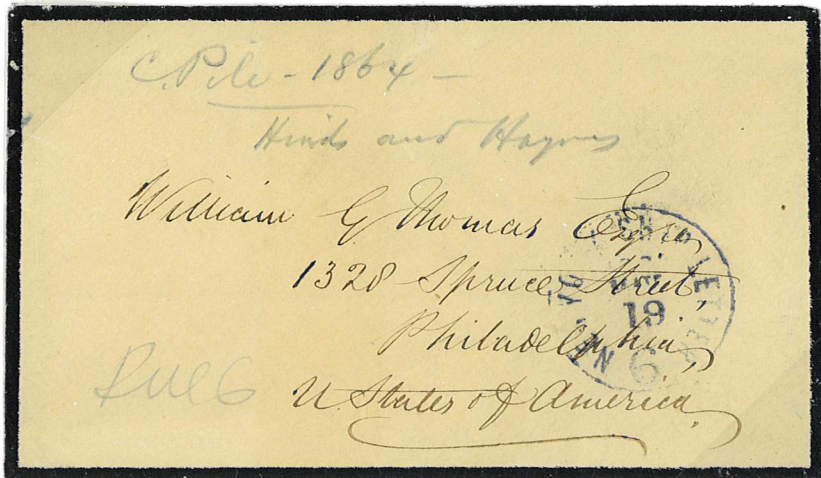 C. Pile - 1864 -
Hinds and Haynes
William G Thomas Esqre,
1328 Spruce Street,
Philadelphia,
U. States of America.
N. YORK SHIP LETTER
19
6